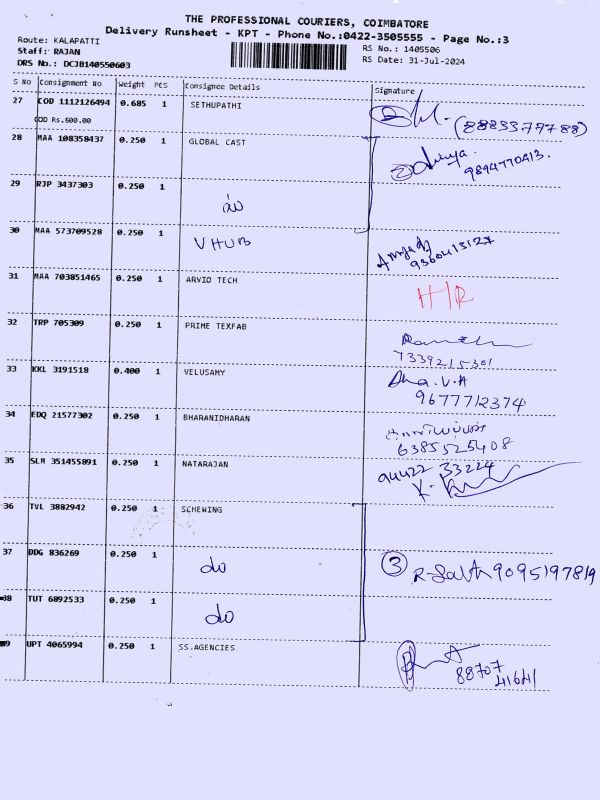 THE PROFESSIONAL COURIERS, COIMBATORE
Delivery Runsheet - KPT - Phone No.:0422-3505555 - Page No.:3
Route: KALAPATTI
Staff: RAJAN
DRS No.: DCJB140550603
RS No.: 1405506
RS Date: 31-Jul-2024
S No Consignment No Weight PCS Consignee Details Signature
27 COD 1112126494 0.685 1 SETHUPATHI (8883377788)
COD Rs.600.00
28 MAA 108358437 0.250 1 GLOBAL CAST
9894770413.
29 RJP 3437303 0.250 1
30 MAA 573709528 0.250 1 VHUB
9360413127
31 MAA 703851465 0.250 1 ARVIO TECH H/R
32 TRP 705309 0.250 1 PRIME TEXFAB
7339215301
33 KKL 3191518 0.400 1 VELUSAMY
9677712374
34 EDQ 21577302 0.250 1 BHARANIDHARAN
6385525408
35 SLM 351455891 0.250 1 NATARAJAN 94422 33224
36 TVL 3882942 0.250 1 SCHEWING
37 DDG 836269 0.250 1 do ③ 9095197819
38 TUT 6092533 0.250 1 do
39 UPT 4065994 0.250 1 SS.AGENCIES
88707
41641